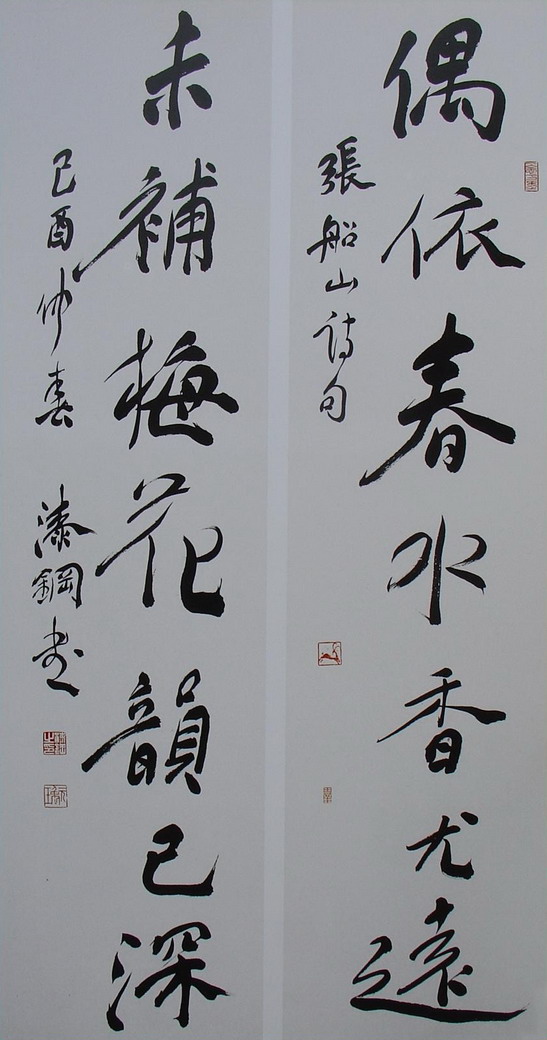 偶依春水香尤遠
張船山詩句
未補梅花韻已深
己酉仲春 漆鋼書